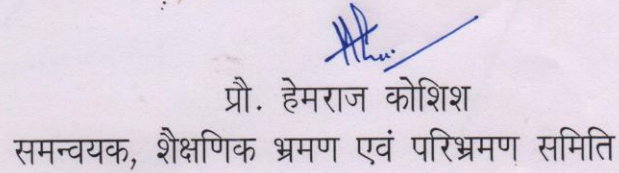 प्रौ. हेमराज कोशिश
समन्वयक, शैक्षणिक भ्रमण एवं परिभ्रमण समिति